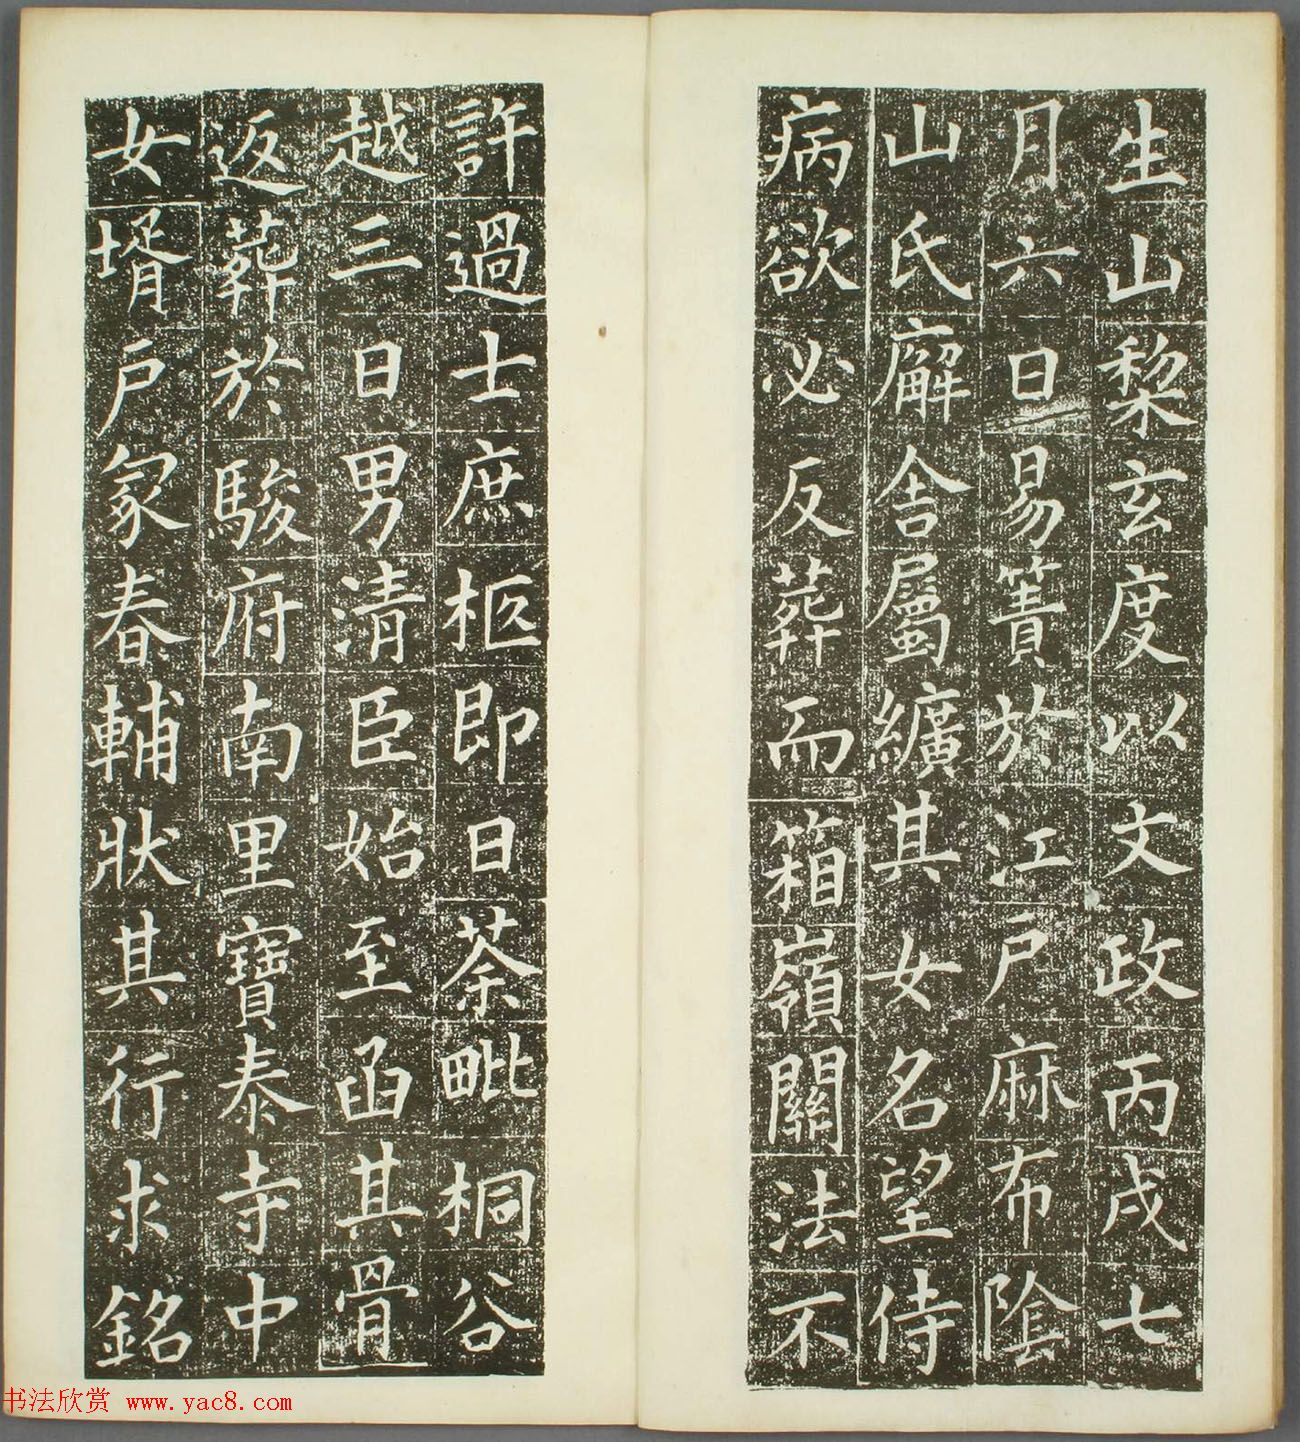 生山棃玄度以文政丙戌七
月六日易簀於江戶麻布陰
山氏廨舎屬纊其女名望侍
病欲必反葬而箱嶺關法不
許過士庶柩即日荼毗桐谷
越三日男清臣始至函其骨
返葬於駿府南里寶泰寺中
女壻戶冢春輔狀其行求銘
书法欣赏 www.yac8.com